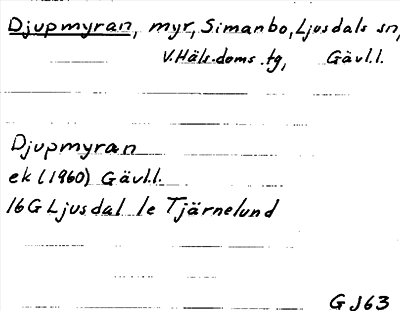 Djupmyran, myr, Simanbo, Ljusdals sn,
V. Häls. doms. tg, Gävl.l.
Djupmyran
ek (1960) Gävl.l.
16G Ljusdal 1e Tjärnelund
GJ63